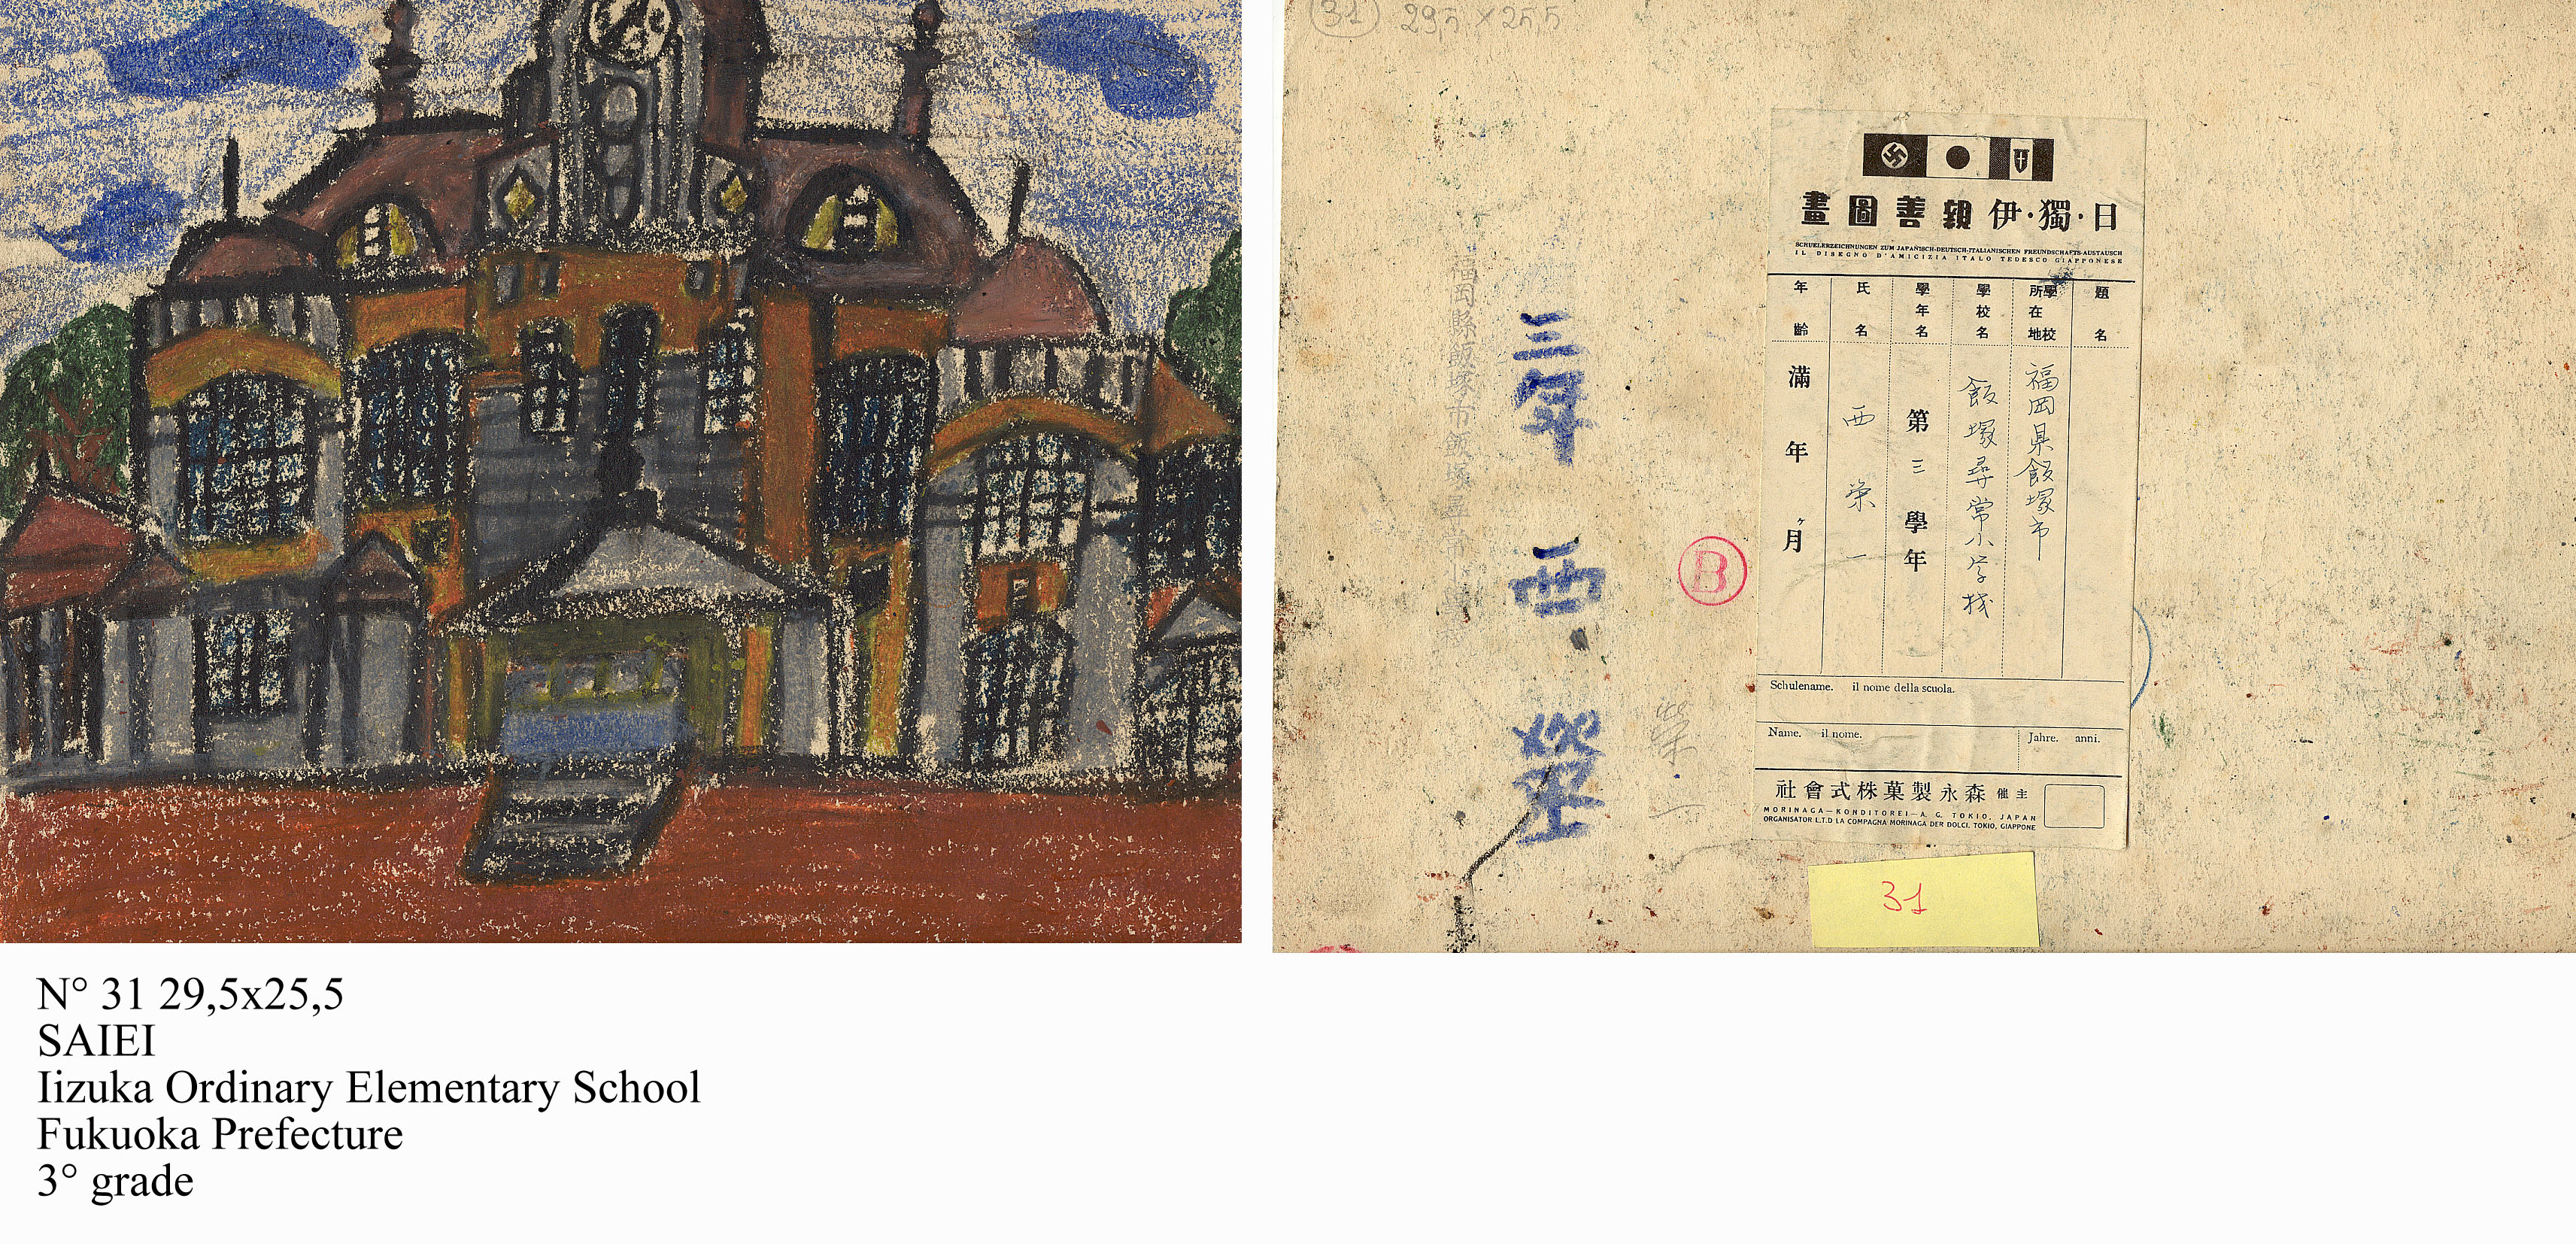 31 29,5 x 25,5
日・獨・伊親善圖畫
SCHUELERZEICHNUNGEN ZUM JAPANISCH-DEUTSCH-ITALIANISCHEN FREUNDSCHAFTS-AUSTAUSCH
IL DISEGNO D'AMICIZIA ITALO TEDESCO GIAPPONESE
題名
學校所在地 福岡県飯塚市
學校名 飯塚尋常小学校
學年名 第三學年
氏名 西栄一
年齡 滿年ヶ月
B
三年 西
福岡縣飯塚市飯塚尋常小學校
Schulename. il nome della scuola.
Name. il nome.
Jahre. anni.
主催 森永製菓株式會社
MORINAGA—KONDITOREI—A. G. TOKIO, JAPAN
ORGANISATOR L.T.D LA COMPAGNA MORINAGA DER DOLCI, TOKIO, GIAPPONE
31
N° 31 29,5x25,5
SAIEI
Iizuka Ordinary Elementary School
Fukuoka Prefecture
3° grade